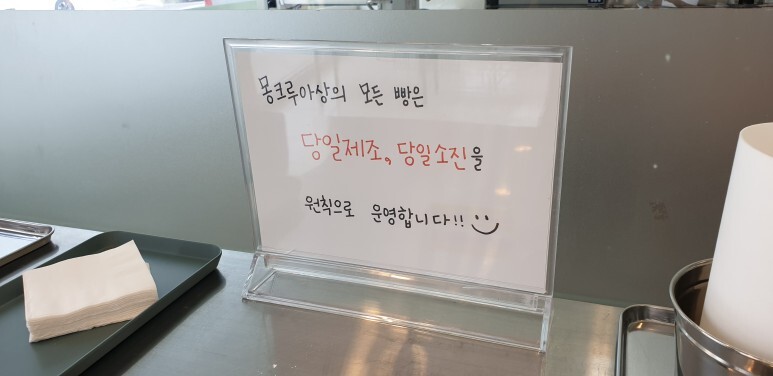 몽크루아상의 모든 빵은
당일제조, 당일소진을
원칙으로 운영합니다!!